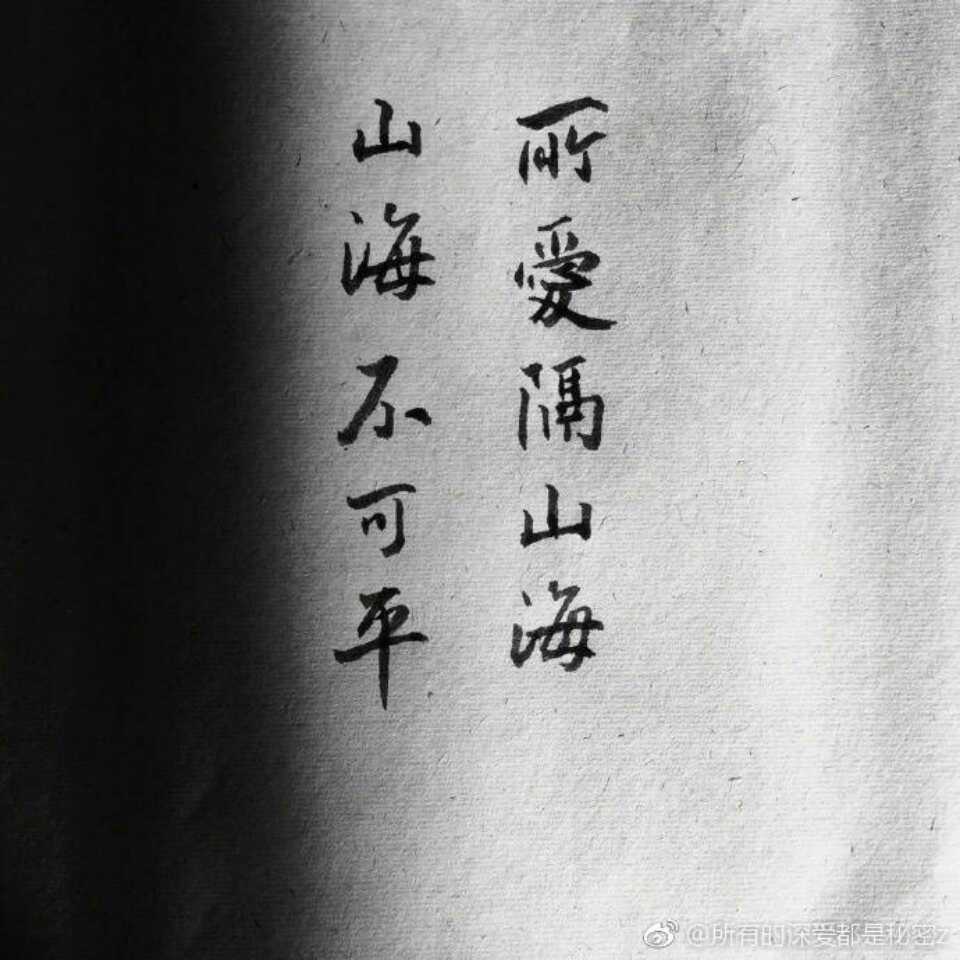 所愛隔山海
山海不可平
@所有的深爱都是秘密z